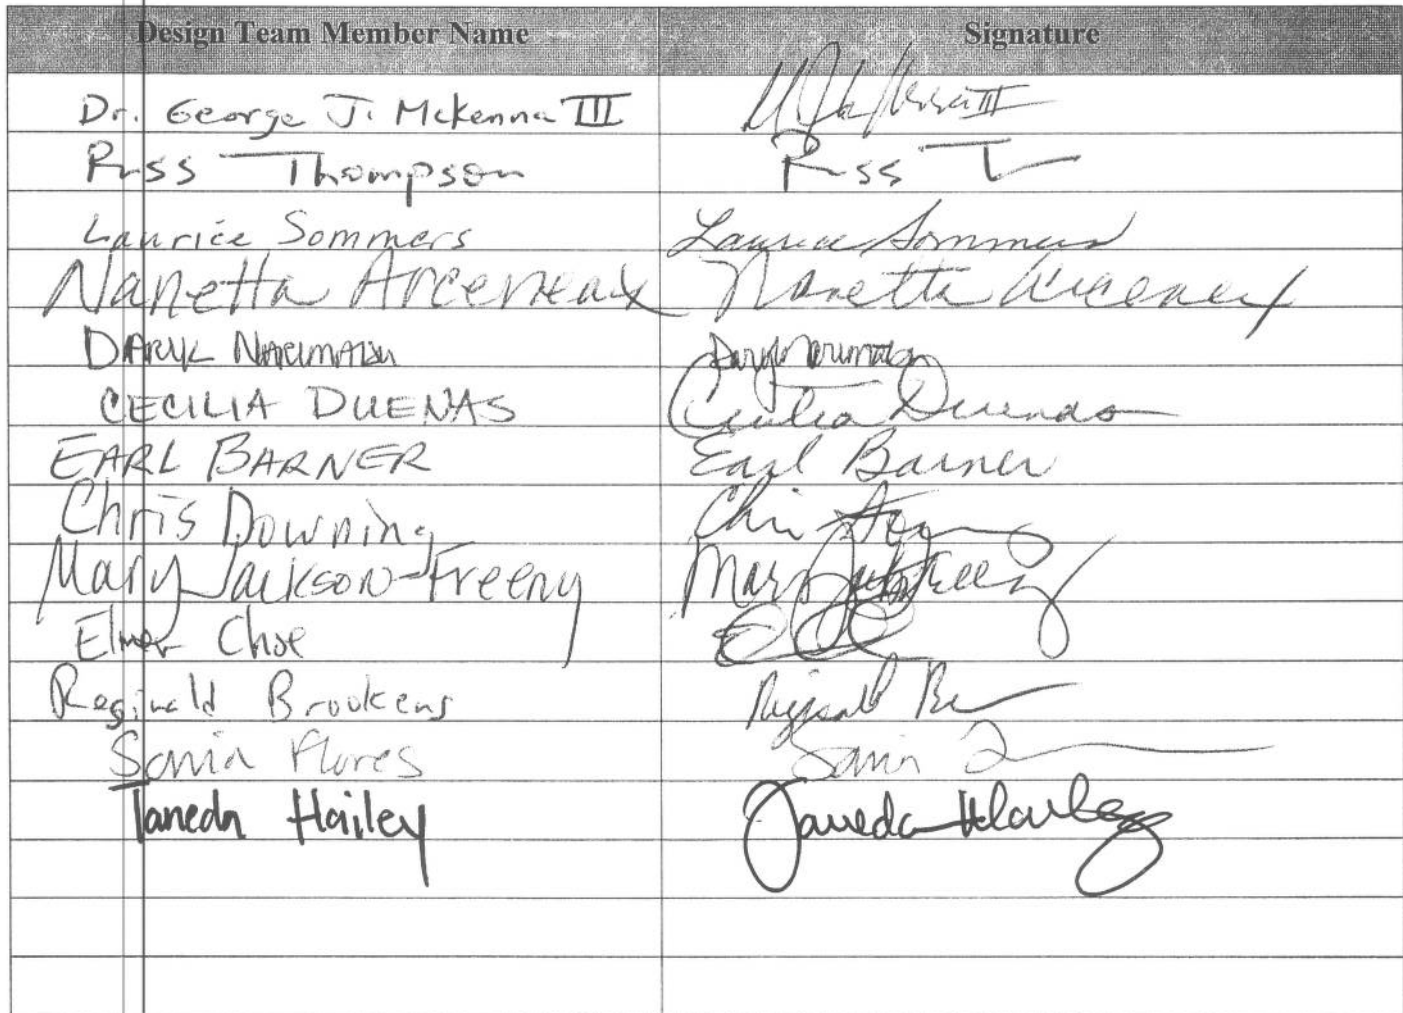 Design Team Member Name Signature
Dr. George J. McKenna III
Russ Thompson Russ T
Laurice Sommers Laurice Sommers
Nanetta Arceneaux Nanetta Arceneaux
DARYL NARIMATSU Daryl Narimatsu
CECILIA DUENAS Cecilia Duenas
EARL BARNER Earl Barner
Chris Downing Chris
Mary Jackson-Freeny Mary Freeny
Elmer Choe
Reginald Brookens Reginald
Sonia Flores Sonia
Taneda Hailey Taneda Hailey